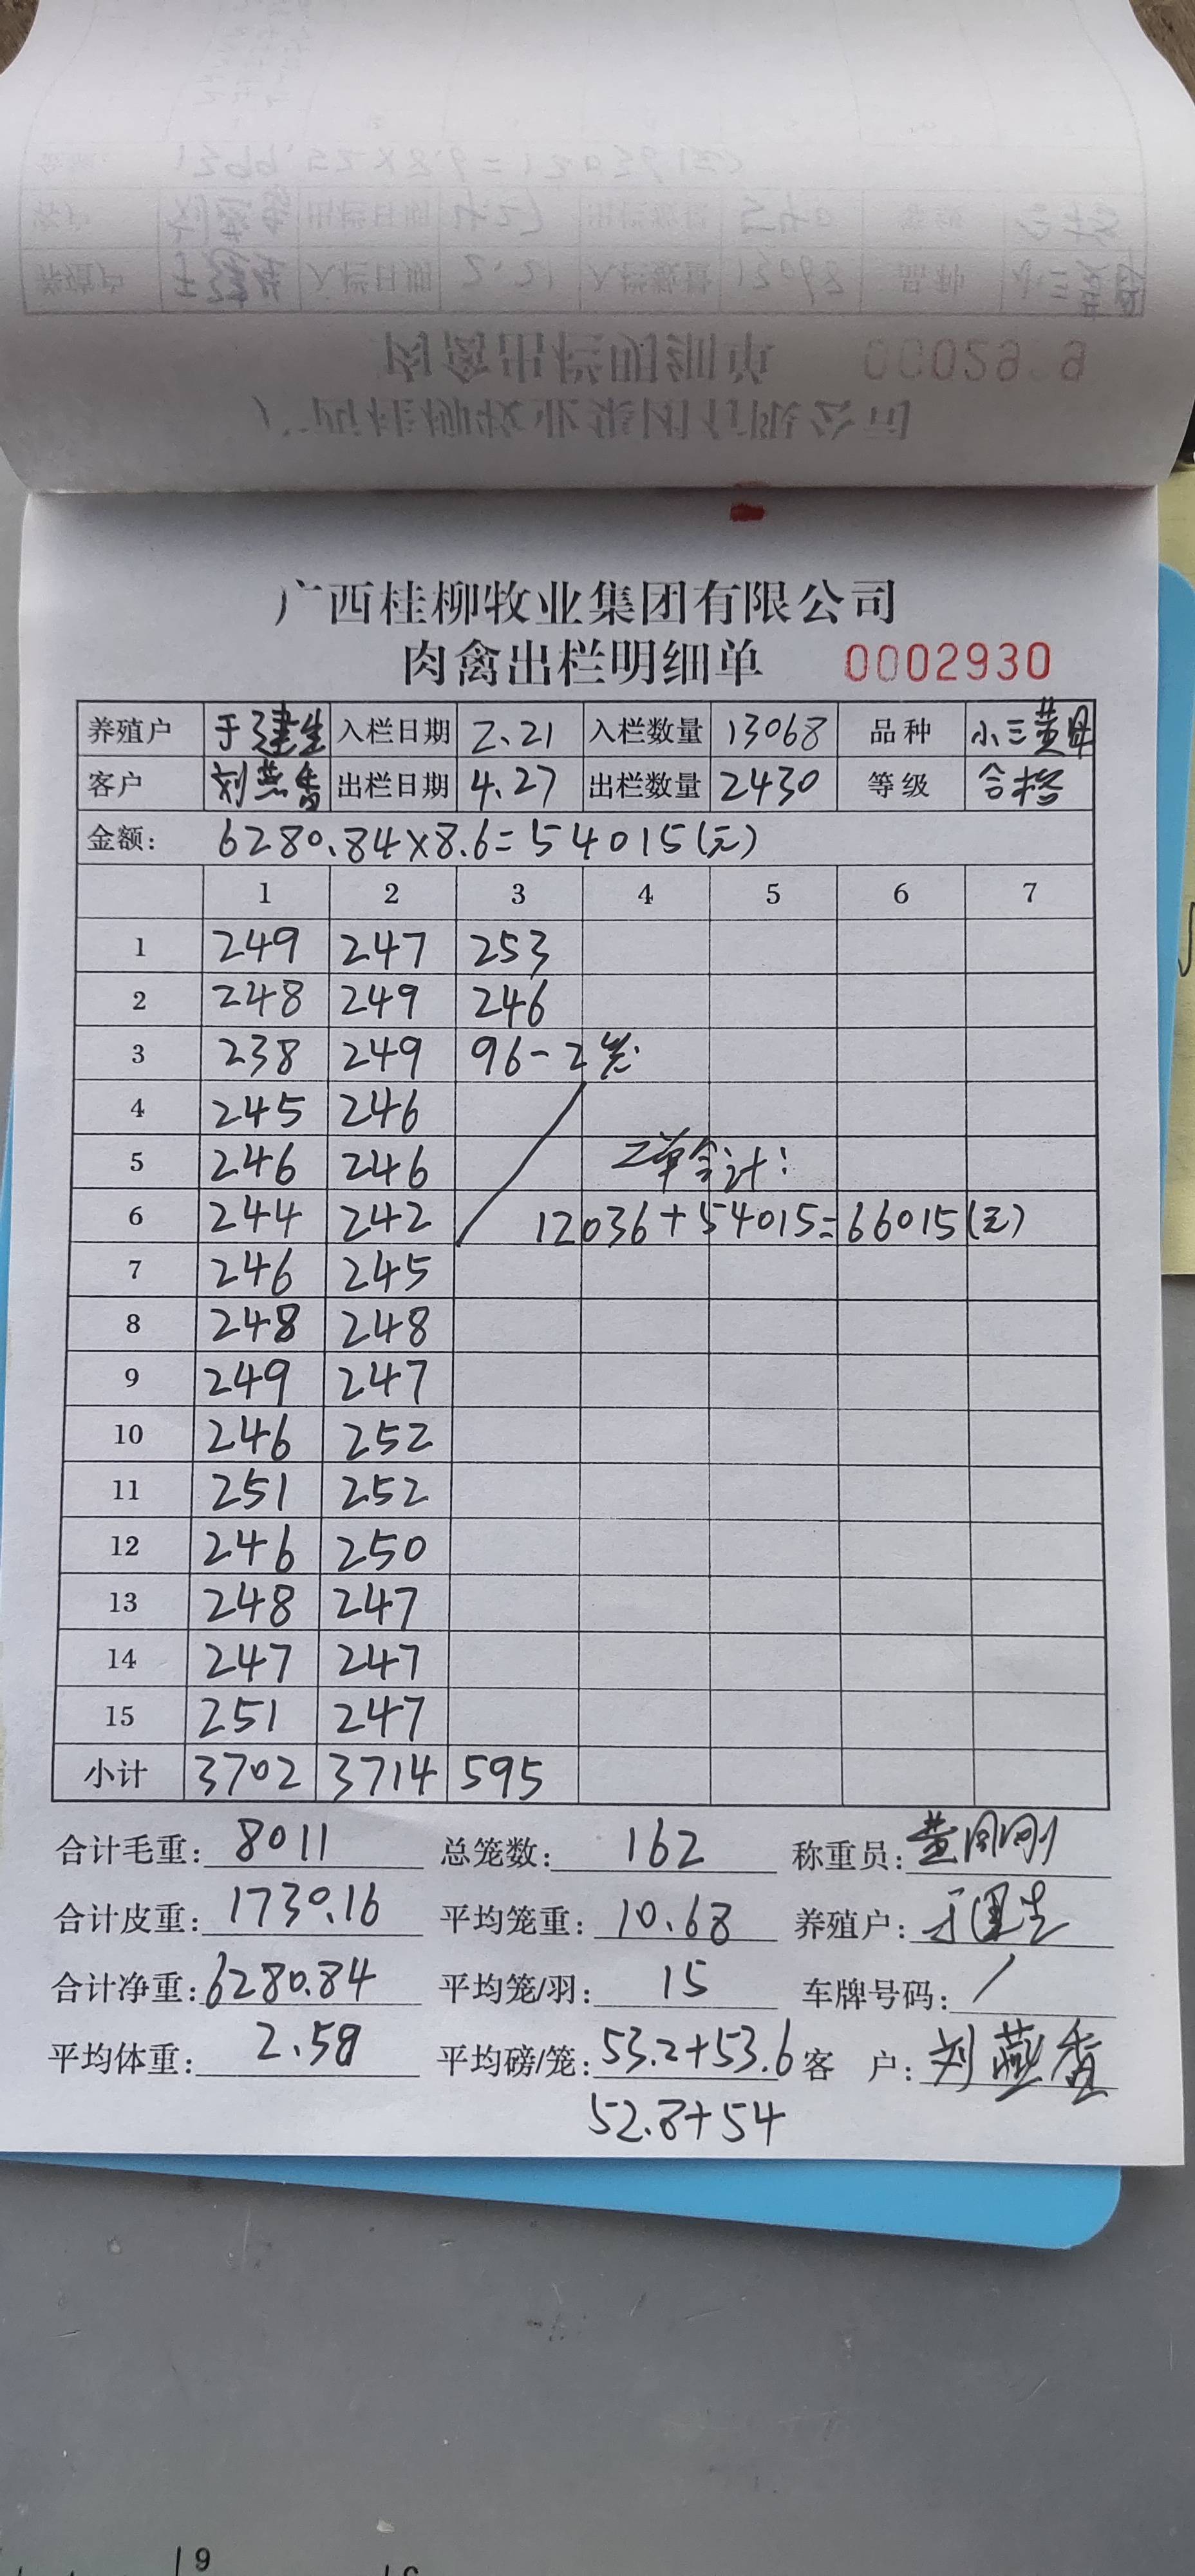 广西桂柳牧业集团有限公司
肉禽出栏明细单 0002930
养殖户 于建生 入栏日期 2.21 入栏数量 13068 品种 小三黄母
客户 刘燕香 出栏日期 4.27 出栏数量 2430 等级 合格
金额: 6280.84×8.6=54015(元)
1 2 3 4 5 6 7
1 249 247 253
2 248 249 246
3 238 249 96-2笼
4 245 246
5 246 246 二单合计:
6 244 242 12036+54015=66015(元)
7 246 245
8 248 248
9 249 247
10 246 252
11 251 252
12 246 250
13 248 247
14 247 247
15 251 247
小计 3702 3714 595
合计毛重: 8011 总笼数: 162 称重员: 黄刚刚
合计皮重: 1730.16 平均笼重: 10.68 养殖户: 于建生
合计净重: 6280.84 平均笼/羽: 15 车牌号码: /
平均体重: 2.58 平均磅/笼: 53.2+53.6 客 户: 刘燕香
52.8+54